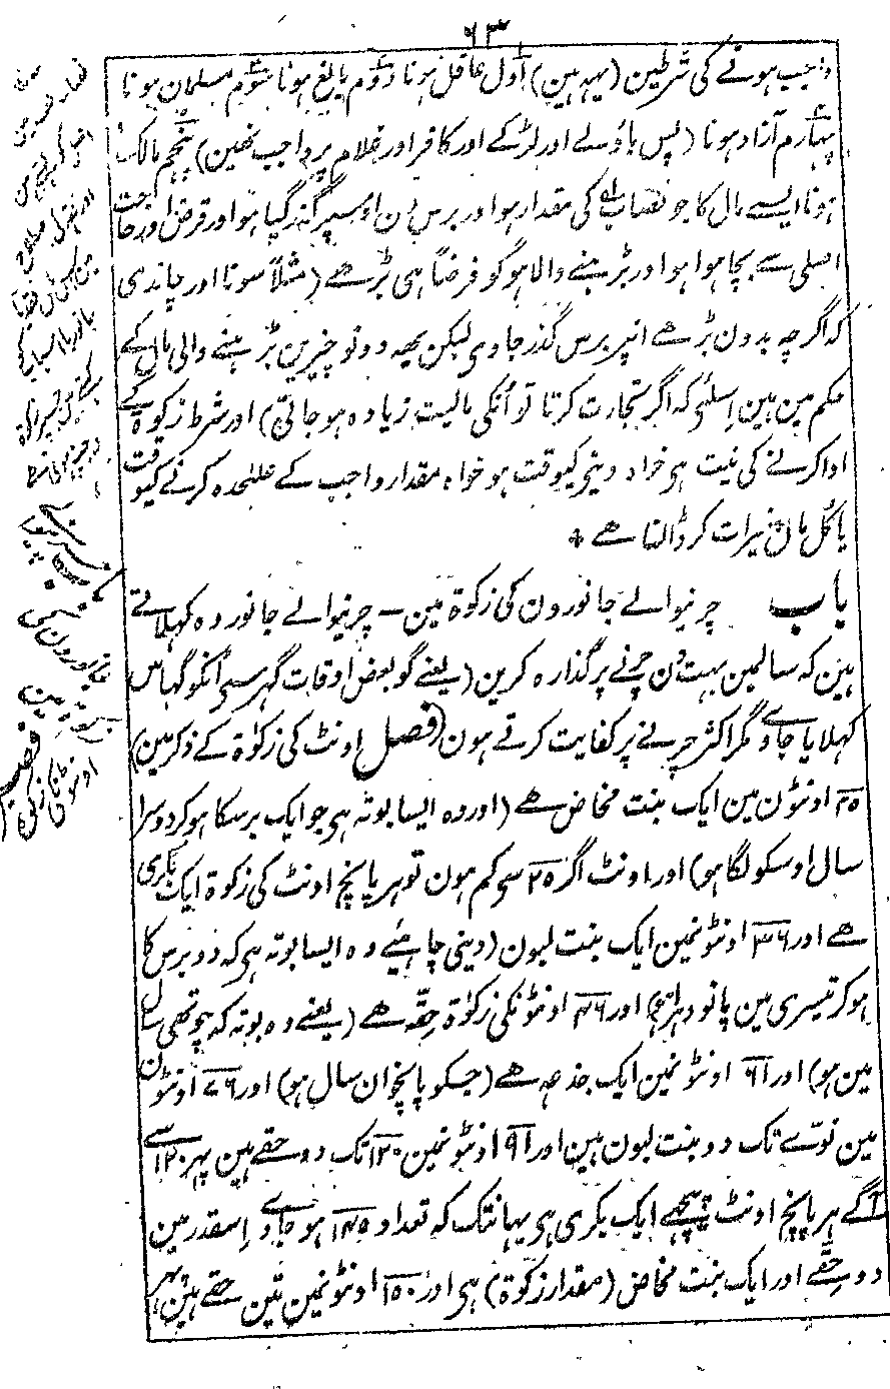 ٦٣
واجب ہونے کی شرطین (یہہ ہین) اول عاقل ہونا دوم بالغ ہونا سوم مسلمان ہونا
چہارم آزاد ہونا (پس باؤلے اور لڑکے اور کافر اور غلام پر واجب نہین) پنجم مالک
ہونا ایسے مال کا جو نصاب کی مقدار ہو اور برس دن اوسپر گذر گیا ہو اور قرض اور حاجت
اصلی سے بچا ہوا ہو اور بڑہنے والا ہو گو فرضاً ہی بڑھے (مثلاً سونا اور چاندی
کہ اگرچہ بدون بڑھے انپر برس گذر جاوی لیکن یہہ دونو چیزین بڑہنے والی مال کے
حکم مین ہین اسلئے کہ اگر تجارت کرتا تو اُنکی مالیت زیادہ ہو جاتی) اور شرط زکوۃ کے
ادا کرنے کی نیت ہی خواہ دینی کیوقت ہو خواہ مقدار واجب کے علٰحدہ کرنے کیوقت
یا کُل مال خیرات کر ڈالنا ھے ٭
باب چرنیوالے جانورون کی زکوۃ مین – چرنیوالے جانور وہ کہلاتے
ہین کہ سالمین بہت دن چرنے پر گذارہ کرین (یعنے گو بعض اوقات گہر سے اُنکو گہاس
کہلایا جاوے مگر اکثر چرنے پر کفایت کرتے ہون) (فصل اونٹ کی زکوٰۃ کے ذکر مین)
۲۵ اونٹون مین ایک بنت مخاض ھے (اور وہ ایسا بوتہ ہی جو ایک برسکا ہو کر دوسرا
سال اوسکو لگا ہو) اور اونٹ اگر ۲۵ سی کم ہون تو ہر پانچ اونٹ کی زکوۃ ایک بکری
ھے اور ۳۶ اونٹونمین ایک بنت لبون (دینی چاہیئے وہ ایسا بوتہ ہی کہ دو برس کا
ہو کر تیسری مین پانو دہرا ہو) اور ۴۶ اونٹونکی زکوٰۃ حِقّہ ھے (یعنے وہ بوتہ کہ چوتھی سال
مین ہو) اور ۶۱ اونٹونمین ایک جذعہ ھے (جسکو پانچوان سال ہو) اور ۷۶ اونٹون
مین نوّے تک دو بنت لبون ہین اور ۹۱ اونٹونمین ۱۲۰ تک دو حقے ہین پہر ۱۲۰ سے
آگے ہر پانچ اونٹ پیچھے ایک بکری ہی یہانتک کہ تعداد ۱۴۵ ہو جاوے اِسقدر مین
دو حِقّے اور ایک بنت مخاض (مقدار زکوۃ) ہی اور ۱۵۰ اونٹونمین تین حقے ہین پہر